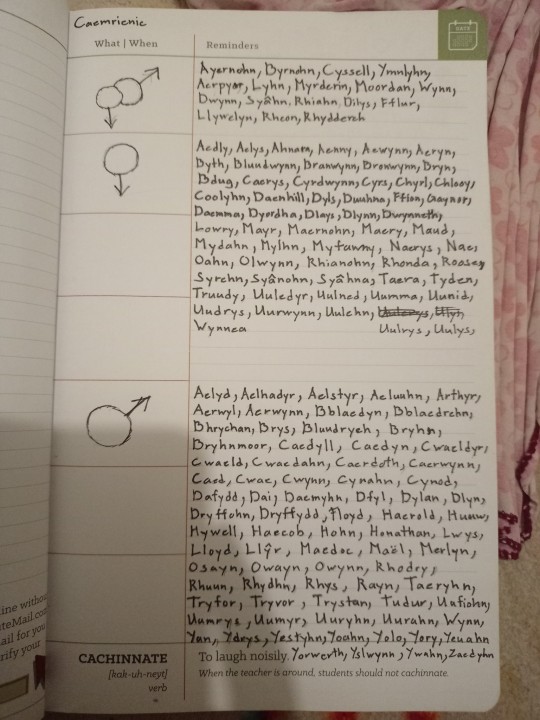 Caemrienic
What | When
Reminders
DATE
Ayernohn, Byrnohn, Cyssell, Ymnlyhn,
Aerpyor, Lyhn, Myrderin, Moordan, Wynn,
Dwynn, Syâhn, Rhiahn, Dilys, Fflur,
Llywelyn, Rheon, Rhydderch
Aedly, Aelys, Ahnam, Aenny, Aewynn, Aeryn,
Byth, Bluudwynn, Branwynn, Bronwynn, Bryn,
Bdug, Caerys, Cyrdwynn, Cyrs, Chyrl, Chlooy,
Coolyhn, Daenhill, Dyls, Duuhna, Ffion, Gaynor,
Daemma, Dyordha, Dlays, Dlynn, Dwynneth,
Lowry, Mayr, Maernohn, Maery, Maud,
Mydahn, Mylhn, Myfawny, Naerys, Nae,
Oahn, Olwynn, Rhianohn, Rhonda, Roosey
Syrehn, Syânohn, Syâhna, Taera, Tyden,
Truudy, Uuledyr, Uulned, Uumma, Uunid,
Uudrys, Uurwynn, Uulehn,
Wynnea Uulrys, Uulys,
Aelyd, Aelhadyr, Aelstyr, Aeluuhn, Arthyr,
Aerwyl, Aerwynn, Bblaedyn, Bblaedrehn,
Bhrychan, Brys, Bluudryeh, Bryhn,
Bryhnmoor, Caedyll, Caedyn, Cwaeldyr,
Cwaeld, Cwaedahn, Caerdoth, Caerwynn,
Caed, Cwae, Cwynn, Cynahn, Cynod,
Dafydd, Dai, Daemyhn, Dfyl, Dylan, Dlyn,
Dryffohn, Dryffydd, Floyd, Haerold, Huuw,
Hywell, Haecob, Hohn, Honathan, Lwys,
Lloyd, Llŷr, Maedoc, Maël, Merlyn,
Osayn, Owayn, Owynn, Rhodry,
Rhuun, Rhydhn, Rhys, Rayn, Taeryhn,
Tryfor, Tryvor, Trystan, Tudur, Uafiohn,
Uumrys, Uumyr, Uuryhn, Uurahn, Wynn,
Yan, Ydrys, Yestyhn, Yoahn, Yolo, Yory, Yeuahn
Yorwerth, Yslwynn, Ywahn, Zaedyhn
CACHINNATE
[kak-uh-neyt]
verb
To laugh noisily.
When the teacher is around, students should not cachinnate.
ine withou
teMail.co
ail for you
rify your